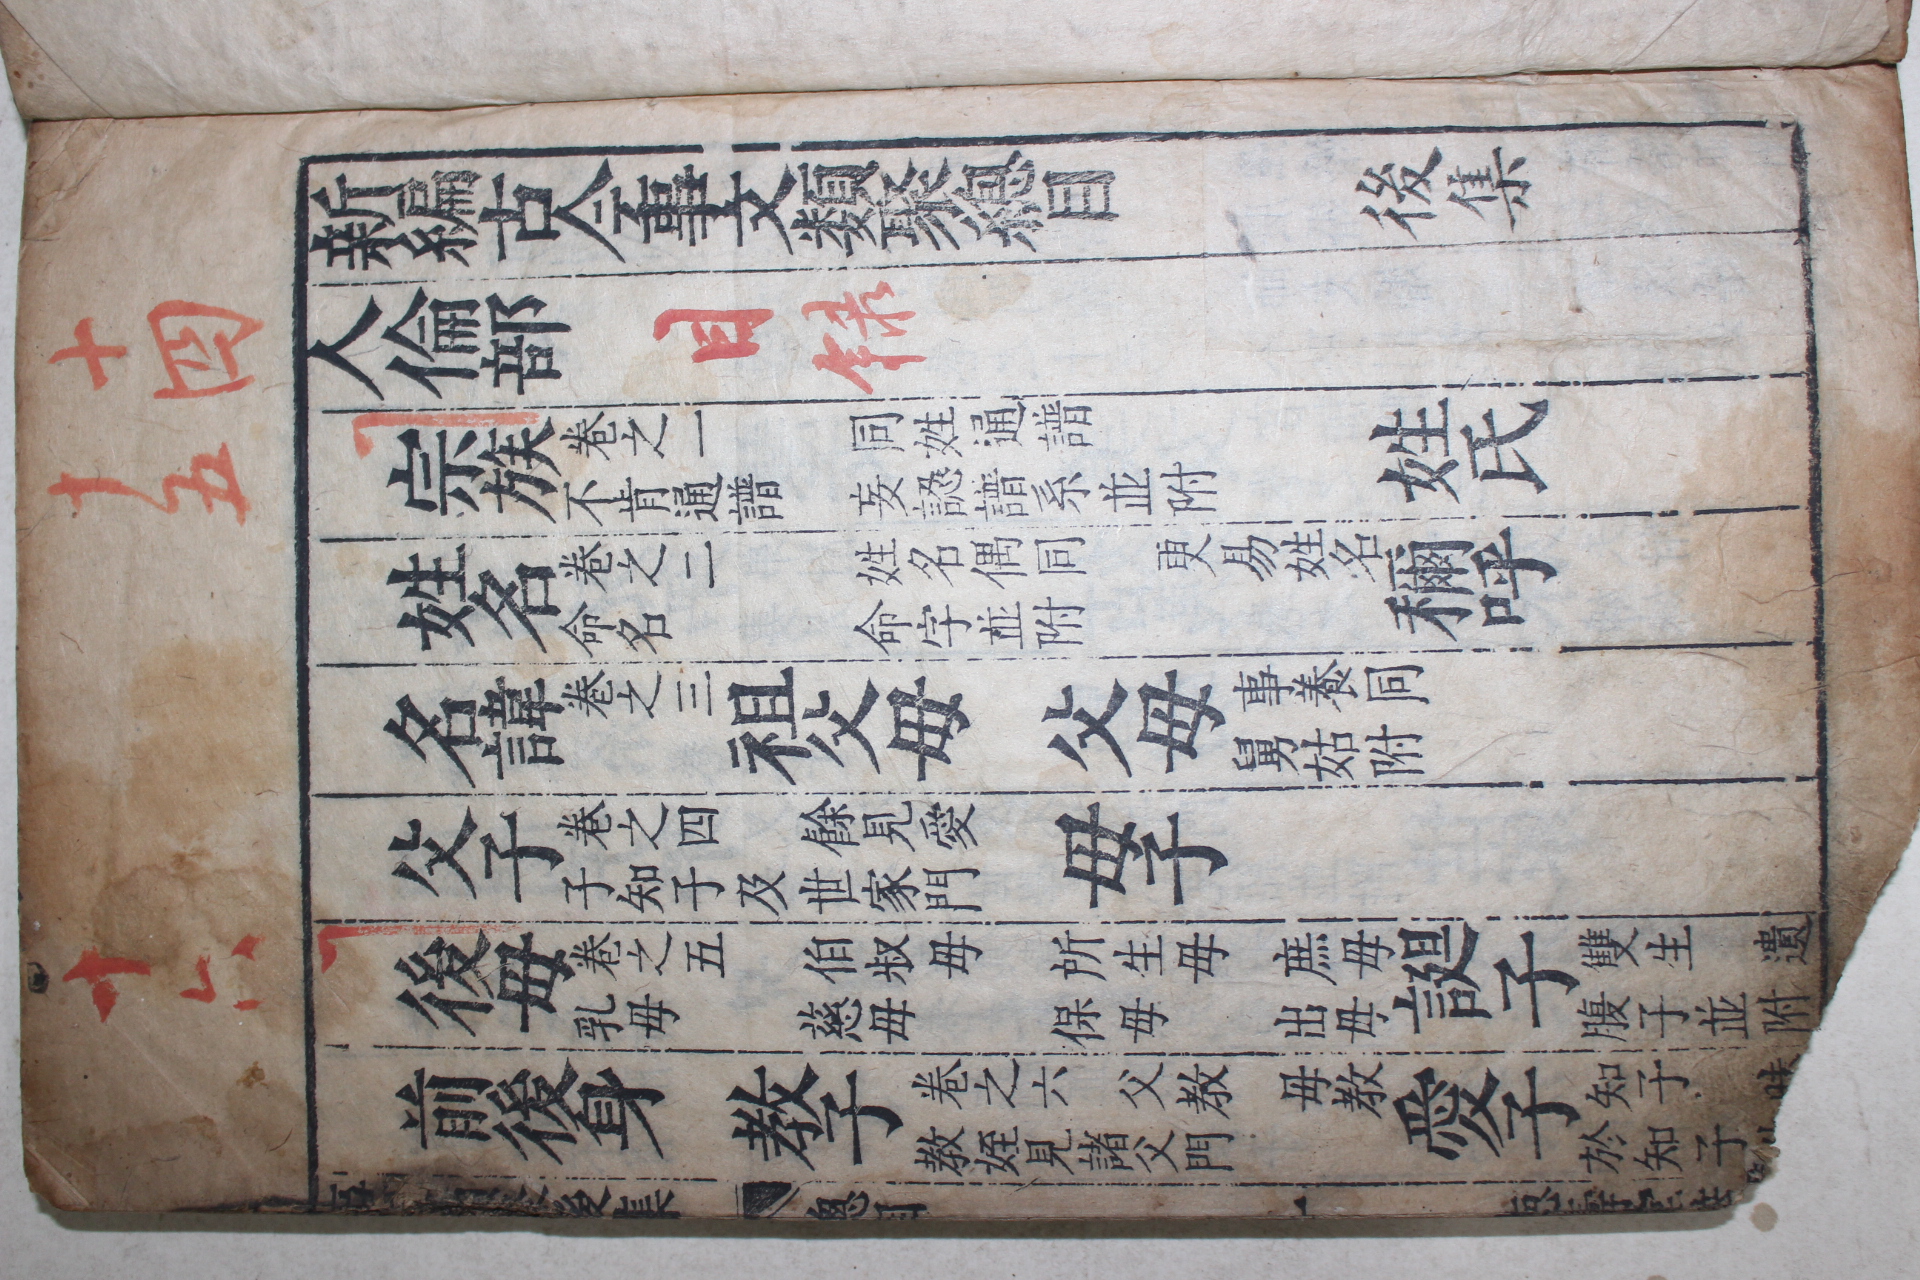 十四
十五
十六
新編古今事文類聚緫目 後集
人倫部 目錄
宗族 卷之一 同姓通譜
不肯通譜 妄認譜系並附 姓氏
姓名 卷之二 姓名偶同 更易姓名
命名 命字並附 穪呼
名諱 卷之三 祖父母 父母 事養同
舅姑附
父子 卷之四 餘見愛
子知子及世家門 母子
後母 卷之五 伯叔母 所生母 庶母
乳母 慈母 保母 出母 誕子 雙生 遺
腹子並附
前後身 教子 卷之六 父教 母教
教姪見諸父門 愛子 知子 昧
於知子
後集 緫目